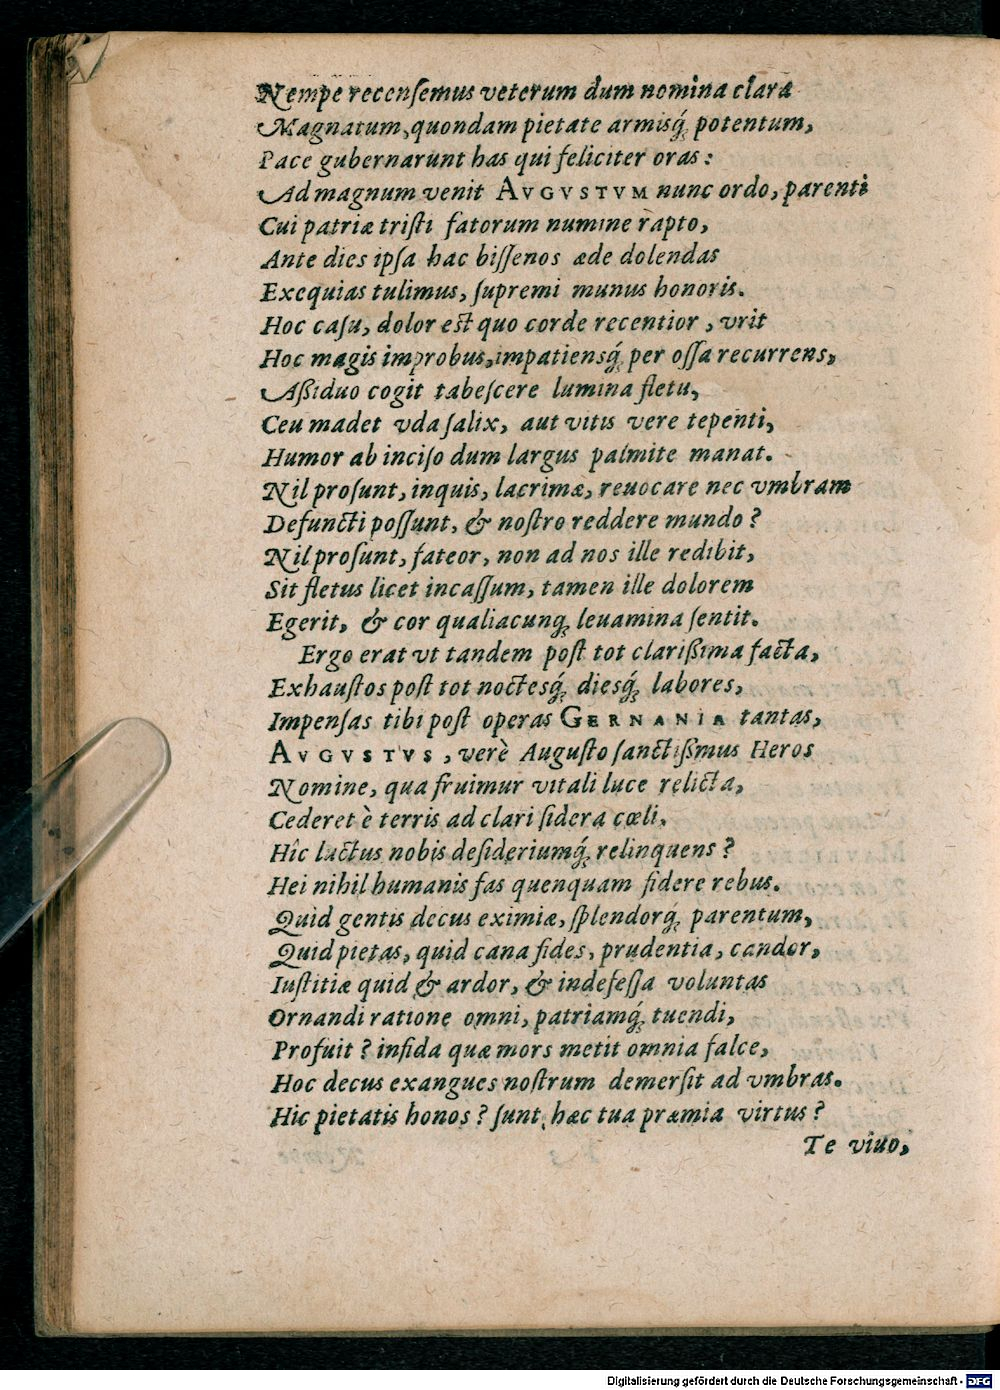 Nempe recenſemus veterum dum nomina clara
Magnatum, quondam pietate armisq́; potentum,
Pace gubernarunt has qui feliciter oras:
Ad magnum venit AVGVSTVM nunc ordo, parenti
Cui patriæ triſti fatorum numine rapto,
Ante dies ipſa hac biſſenos æde dolendas
Exequias tulimus, ſupremi munus honoris.
Hoc caſu, dolor eſt quo corde recentior, vrit
Hoc magis improbus, impatiensq́; per oſſa recurrens,
Aßiduo cogit tabeſcere lumina fletu,
Ceu madet vda ſalix, aut vitis vere tepenti,
Humor ab inciſo dum largus palmite manat.
Nil proſunt, inquis, lacrimæ, reuocare nec vmbram
Defuncti poſſunt, & noſtro reddere mundo?
Nil proſunt, fateor, non ad nos ille redibit,
Sit fletus licet incaſſum, tamen ille dolorem
Egerit, & cor qualiacunq; leuamina ſentit.
Ergo erat vt tandem poſt tot clarißima facta,
Exhauſtos poſt tot noctesq́; diesq́; labores,
Impenſas tibi poſt operas GERNANIA tantas,
AVGVSTVS, verè Auguſto ſanctißmus Heros
Nomine, qua fruimur vitali luce relicta,
Cederet è terris ad clari ſidera cœli,
Hîc luctus nobis deſideriumq́; relinquens?
Hei nihil humanis fas quenquam fidere rebus.
Quid gentis decus eximiæ, ſplendorq́; parentum,
Quid pietas, quid cana fides, prudentia, candor,
Iuſtitiæ quid & ardor, & indefeſſa voluntas
Ornandi ratione omni, patriamq́; tuendi,
Profuit? infida quæ mors metit omnia falce,
Hoc decus exangues noſtrum demerſit ad vmbras.
Hic pietatis honos? ſunt hæc tua præmia virtus?
Te viuo,
Digitalisierung gefördert durch die Deutsche Forschungsgemeinschaft - DFG